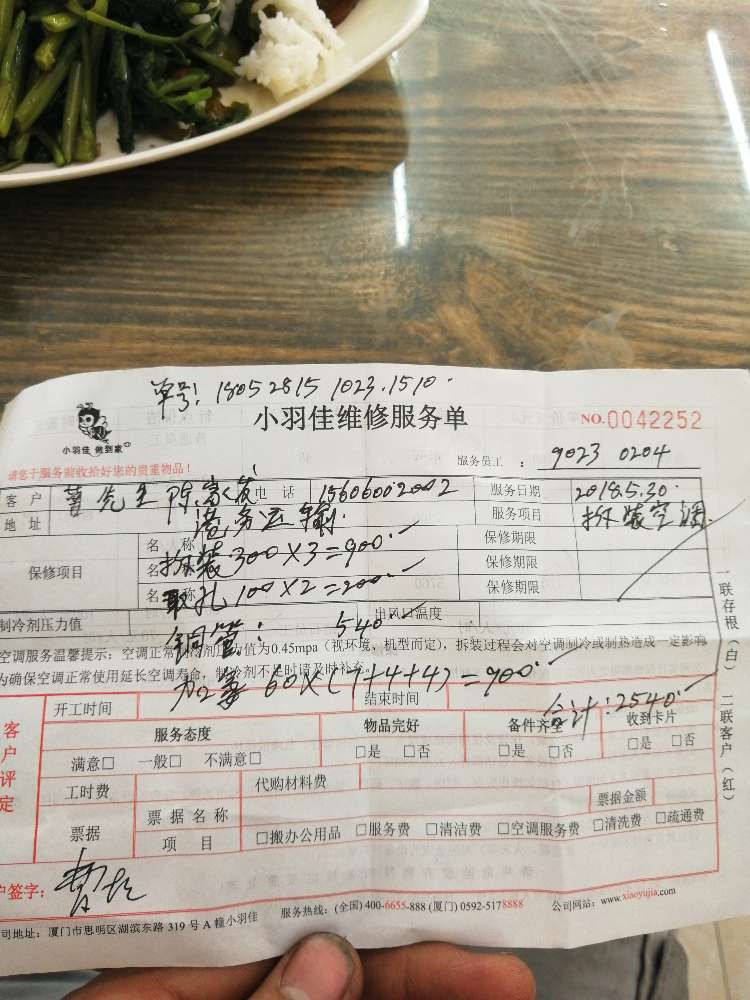 单号: 18052815 1023.1510.
小羽佳 做到家
小羽佳维修服务单
NO.0042252
请您于服务前收拾好您的贵重物品!
服务员工 : 9023 0204
客户 曹先生 陈 电话 15606002002 服务日期 2018.5.30.
地址 港务运输 服务项目 拆装空调
保修项目
名称 拆装 300×3=900. 保修期限
名称 取孔 100×2=200. 保修期限
名称 保修期限
制冷剂压力值 出风口温度
铜管: 540.
空调服务温馨提示:空调正常制冷剂压力值为0.45mpa(视环境、机型而定),拆装过程会对空调制冷或制热造成一定影响
为确保空调正常使用延长空调寿命,制冷剂不足时请及时补充。
加氟 60×(7+4+4)=900.
合计:2540.
客户评定
开工时间 结束时间
服务态度 物品完好 备件齐全 收到卡片
满意□ 一般□ 不满意□ □是 □否 □是 □否 □是 □否
工时费 代购材料费
票据 票据名称 票据金额
项目 □搬办公用品 □服务费 □清洁费 □空调服务费 □清洗费 □疏通费
户签字:
司地址:厦门市思明区湖滨东路 319 号 A 幢小羽佳 服务热线:(全国) 400-6655-888 (厦门) 0592-5178888 公司网站:www.xiaoyujia.com
一联存根(白) 二联客户(红)